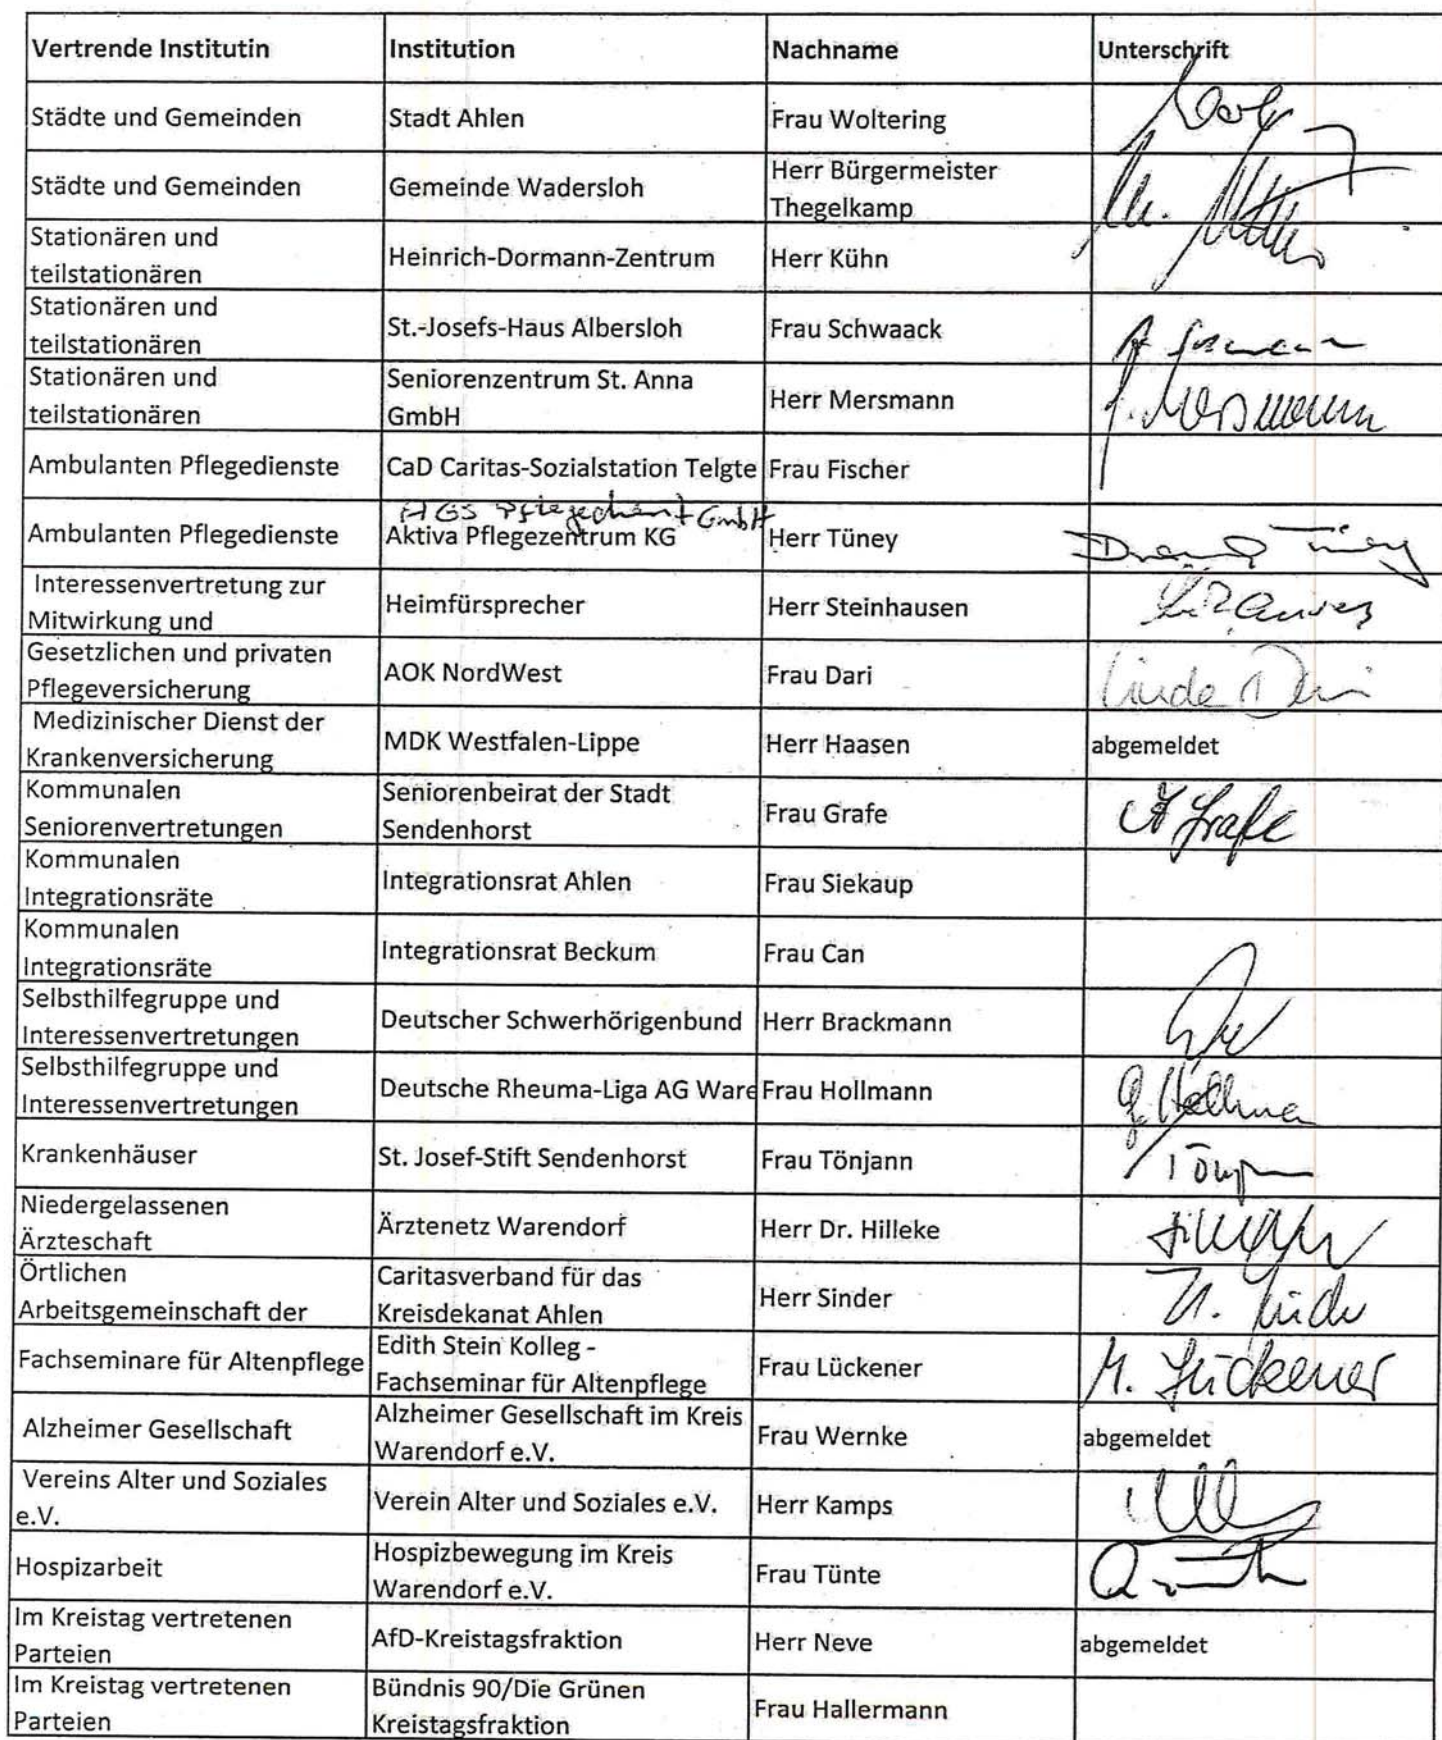 Vertrende Institutin Institution Nachname Unterschrift
Städte und Gemeinden Stadt Ahlen Frau Woltering
Städte und Gemeinden Gemeinde Wadersloh Herr Bürgermeister
Thegelkamp
Stationären und
teilstationären Heinrich-Dormann-Zentrum Herr Kühn
Stationären und
teilstationären St.-Josefs-Haus Albersloh Frau Schwaack
Stationären und
teilstationären Seniorenzentrum St. Anna
GmbH Herr Mersmann J. Mersmann
Ambulanten Pflegedienste CaD Caritas-Sozialstation Telgte Frau Fischer
AGS Pflegedienst GmbH
Ambulanten Pflegedienste Aktiva Pflegezentrum KG Herr Tüney Tüney
Interessenvertretung zur
Mitwirkung und Heimfürsprecher Herr Steinhausen
Gesetzlichen und privaten
Pflegeversicherung AOK NordWest Frau Dari Linda Dari
Medizinischer Dienst der
Krankenversicherung MDK Westfalen-Lippe Herr Haasen abgemeldet
Kommunalen
Seniorenvertretungen Seniorenbeirat der Stadt
Sendenhorst Frau Grafe A Grafe
Kommunalen
Integrationsräte Integrationsrat Ahlen Frau Siekaup
Kommunalen
Integrationsräte Integrationsrat Beckum Frau Can
Selbsthilfegruppe und
Interessenvertretungen Deutscher Schwerhörigenbund Herr Brackmann
Selbsthilfegruppe und
Interessenvertretungen Deutsche Rheuma-Liga AG Ware Frau Hollmann
Krankenhäuser St. Josef-Stift Sendenhorst Frau Tönjann
Niedergelassenen
Ärzteschaft Ärztenetz Warendorf Herr Dr. Hilleke
Örtlichen
Arbeitsgemeinschaft der Caritasverband für das
Kreisdekanat Ahlen Herr Sinder
Fachseminare für Altenpflege Edith Stein Kolleg -
Fachseminar für Altenpflege Frau Lückener M. Lückener
Alzheimer Gesellschaft Alzheimer Gesellschaft im Kreis
Warendorf e.V. Frau Wernke abgemeldet
Vereins Alter und Soziales
e.V. Verein Alter und Soziales e.V. Herr Kamps
Hospizarbeit Hospizbewegung im Kreis
Warendorf e.V. Frau Tünte
Im Kreistag vertretenen
Parteien AfD-Kreistagsfraktion Herr Neve abgemeldet
Im Kreistag vertretenen
Parteien Bündnis 90/Die Grünen
Kreistagsfraktion Frau Hallermann